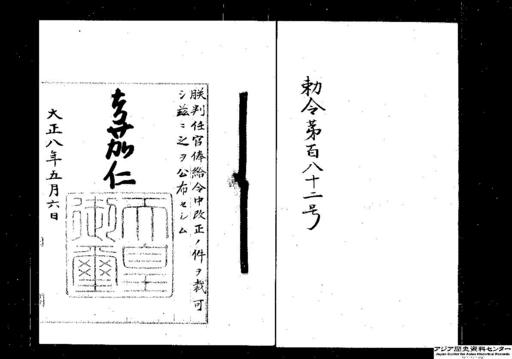 勅令第百八十二号
朕判任官俸給令中改正ノ件ヲ裁可
シ茲ニ之ヲ公布セシム
嘉仁
天皇
御璽
大正八年五月六日
アジア歴史資料センター
Japan Center for Asian Historical Records